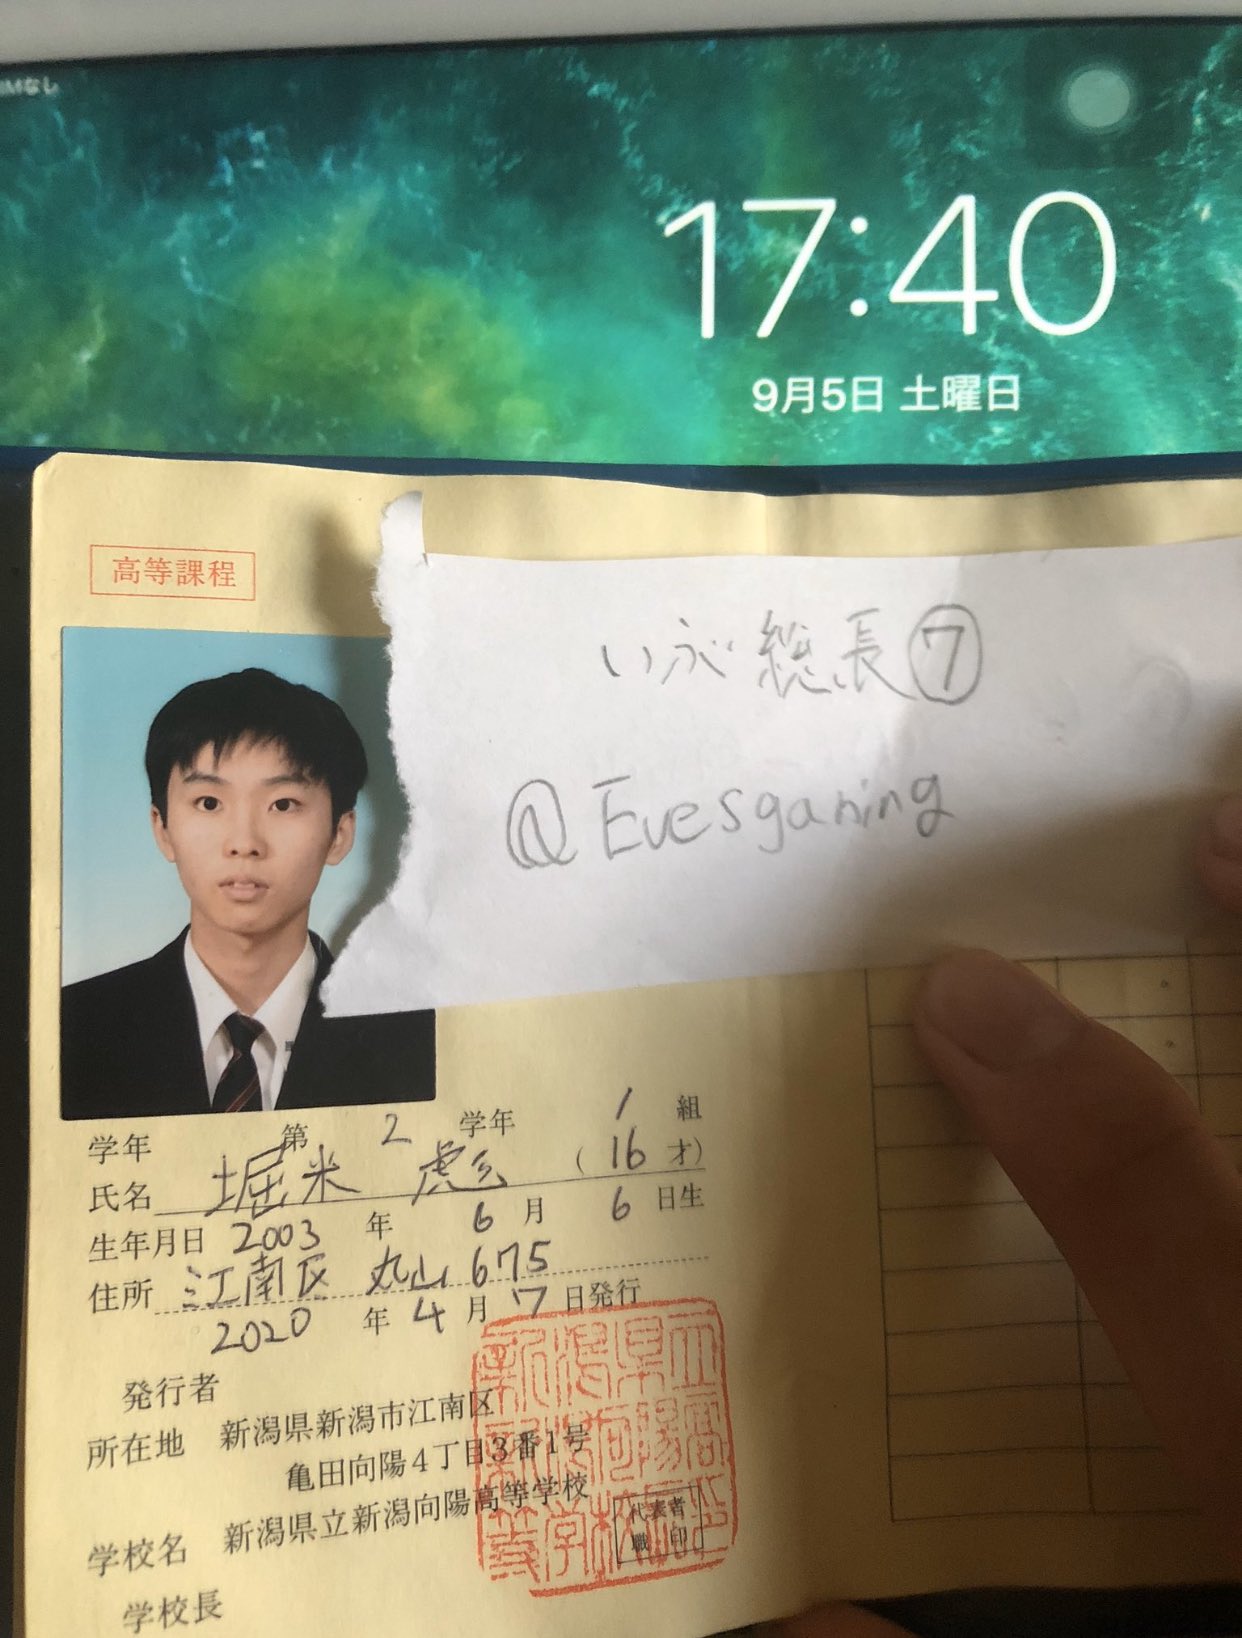 17:40
9月5日 土曜日
高等課程
いぶ総長⑦
@Evesganing
学年 第 2 学年 1 組
氏名 堀米 (16才)
生年月日 2003 年 6 月 6 日生
住所 江南区 丸山 675
2020 年 4 月 7 日発行
発行者
所在地 新潟県新潟市江南区
亀田向陽4丁目3番1号
学校名 新潟県立新潟向陽高等学校
学校長
代表者
職印